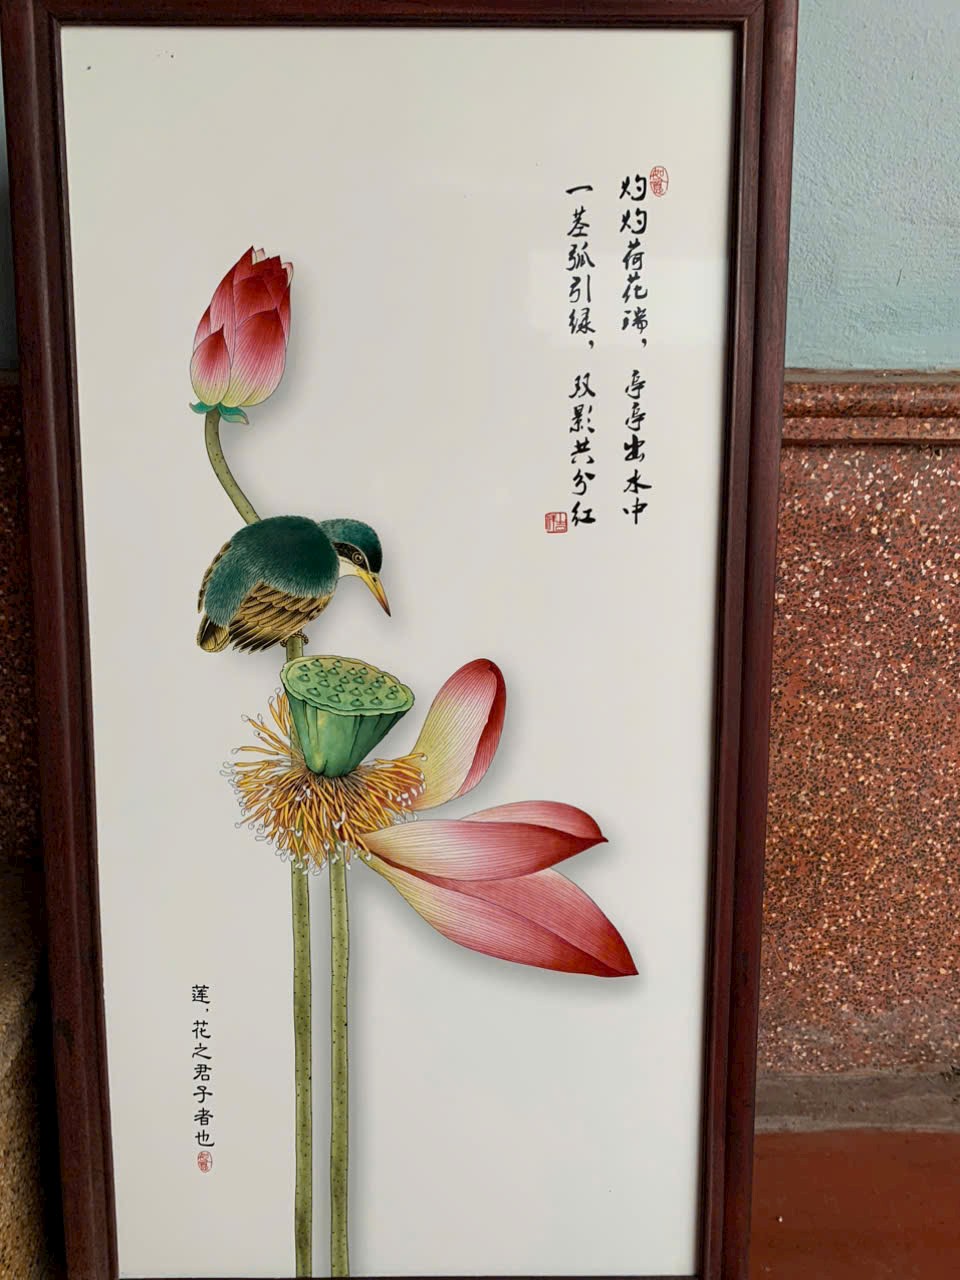 灼灼荷花瑞，亭亭出水中
一茎孤引绿，双影共分红
莲，花之君子者也